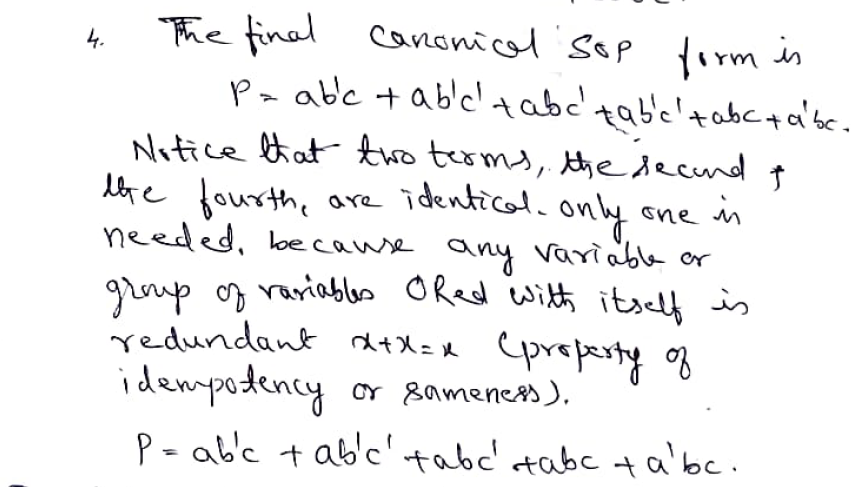 4. The final canonical SOP form is
P = ab'c + ab'c' + abc' + ab'c' + abc + a'bc.
Notice that two terms, the second &
the fourth, are identical. only one is
needed, because any variable or
group of variables ORed with itself is
redundant x+x=x (property of
idempotency or sameness).
P = ab'c + ab'c' + abc' + abc + a'bc.